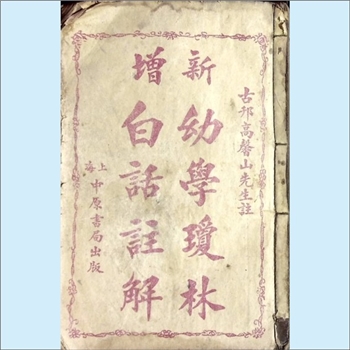 古邗高馨山先生註
新幼學瓊林
增白話註解
上海中原書局出版